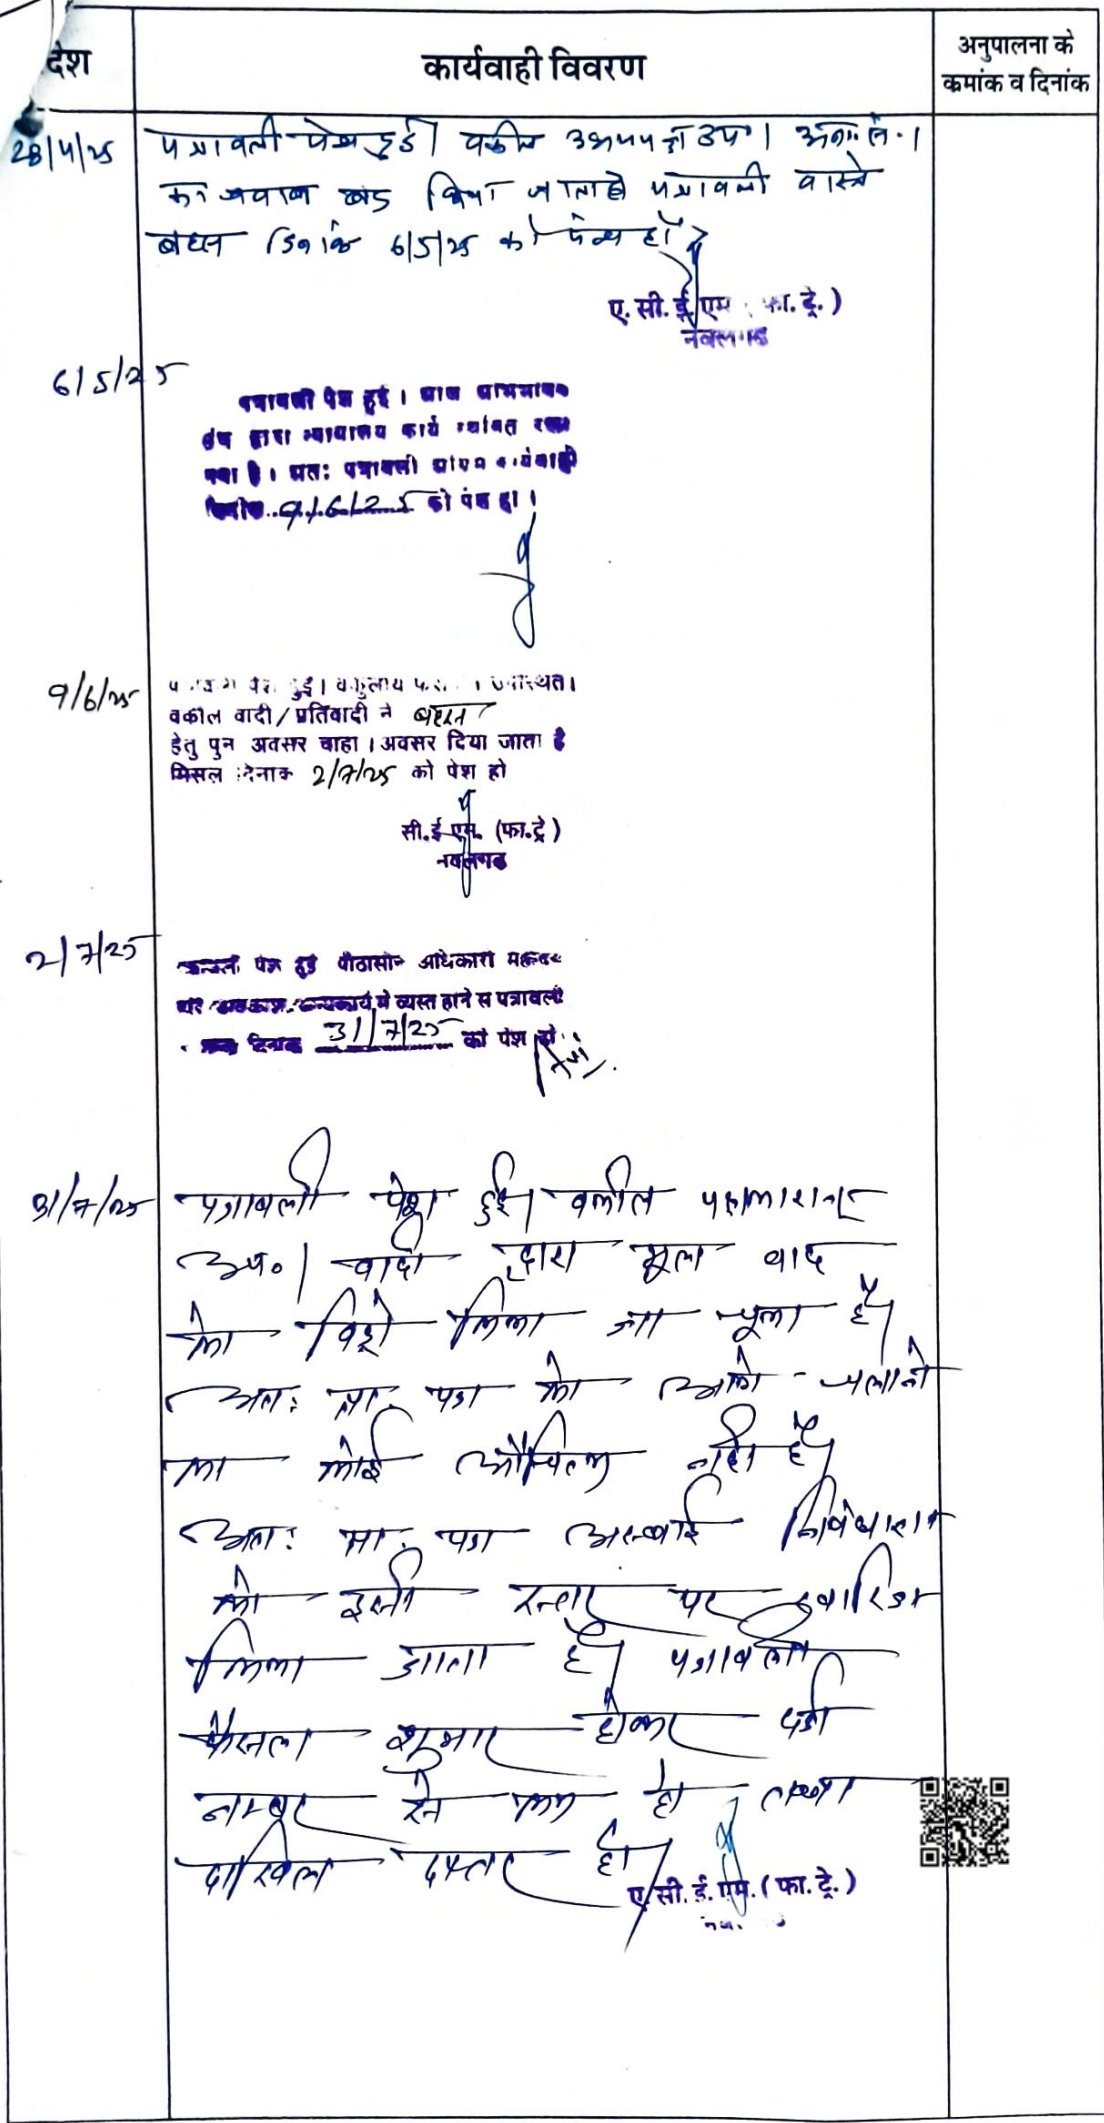 देश
कार्यवाही विवरण
अनुपालना के
क्रमांक व दिनांक
28/4/25 पत्रावली पेश हुई। वकील उभयपक्ष उप। अप्रा.सं.1
का जवाब बंद किया जाता है पत्रावली वास्ते
बहस दिनांक 6/5/25 को पेश हो
ए. सी. ई. एम. (फा. ट्रे.)
नवलगढ
6/5/25
पत्रावली पेश हुई। आज अभिभाषक
संघ द्वारा न्यायालय कार्य स्थगित रखा
गया है। अतः पत्रावली अग्रिम कार्यवाही
दिनांक 9/6/25 को पेश हो।
9/6/25
पेश हुई। उपस्थित।
वकील वादी/प्रतिवादी ने बहस
हेतु पुन अवसर चाहा। अवसर दिया जाता है
मिसल दिनांक 2/7/25 को पेश हो
सी.ई.एम. (फा.ट्रे)
नवलगढ
2/7/25
पेश हुई पीठासीन अधिकारी
अन्यकार्य मे व्यस्त होने से पत्रावली
दिनांक 31/7/25 को पेश हो.
31/7/25 पत्रावली पेश हुई। वकील पक्षकारान्
उप०। वादी द्वारा मूल वाद
को विड्रो किया जा चूका है।
अतः प्रा. पत्र को आगे चलाने
का कोई औचित्य नहीं है।
अतः प्रा. पत्र अस्थाई निषेधाज्ञा
को इसी स्तर पर खारिज
किया जाता है। पत्रावली
फैसला शुमार होकर दर्ज
नम्बर से कम हो तथा
दाखिल दफ्तर हो।
ए. सी. ई. एम. (फा. ट्रे.)